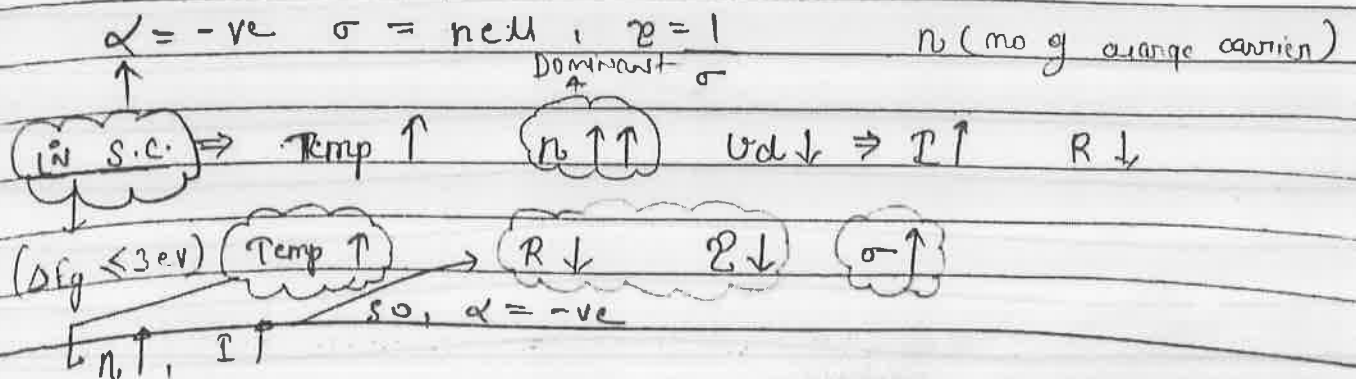 α = -ve σ = neμ , ρ = 1/σ n (no of charge carrier)
Dominant
in S.C. ⇒ Temp ↑ n ↑↑ Vd ↓ ⇒ I ↑ R ↓
(ΔEg ≤ 3 eV) Temp ↑ → R ↓ ρ ↓ σ ↑
so, α = -ve
n ↑, I ↑